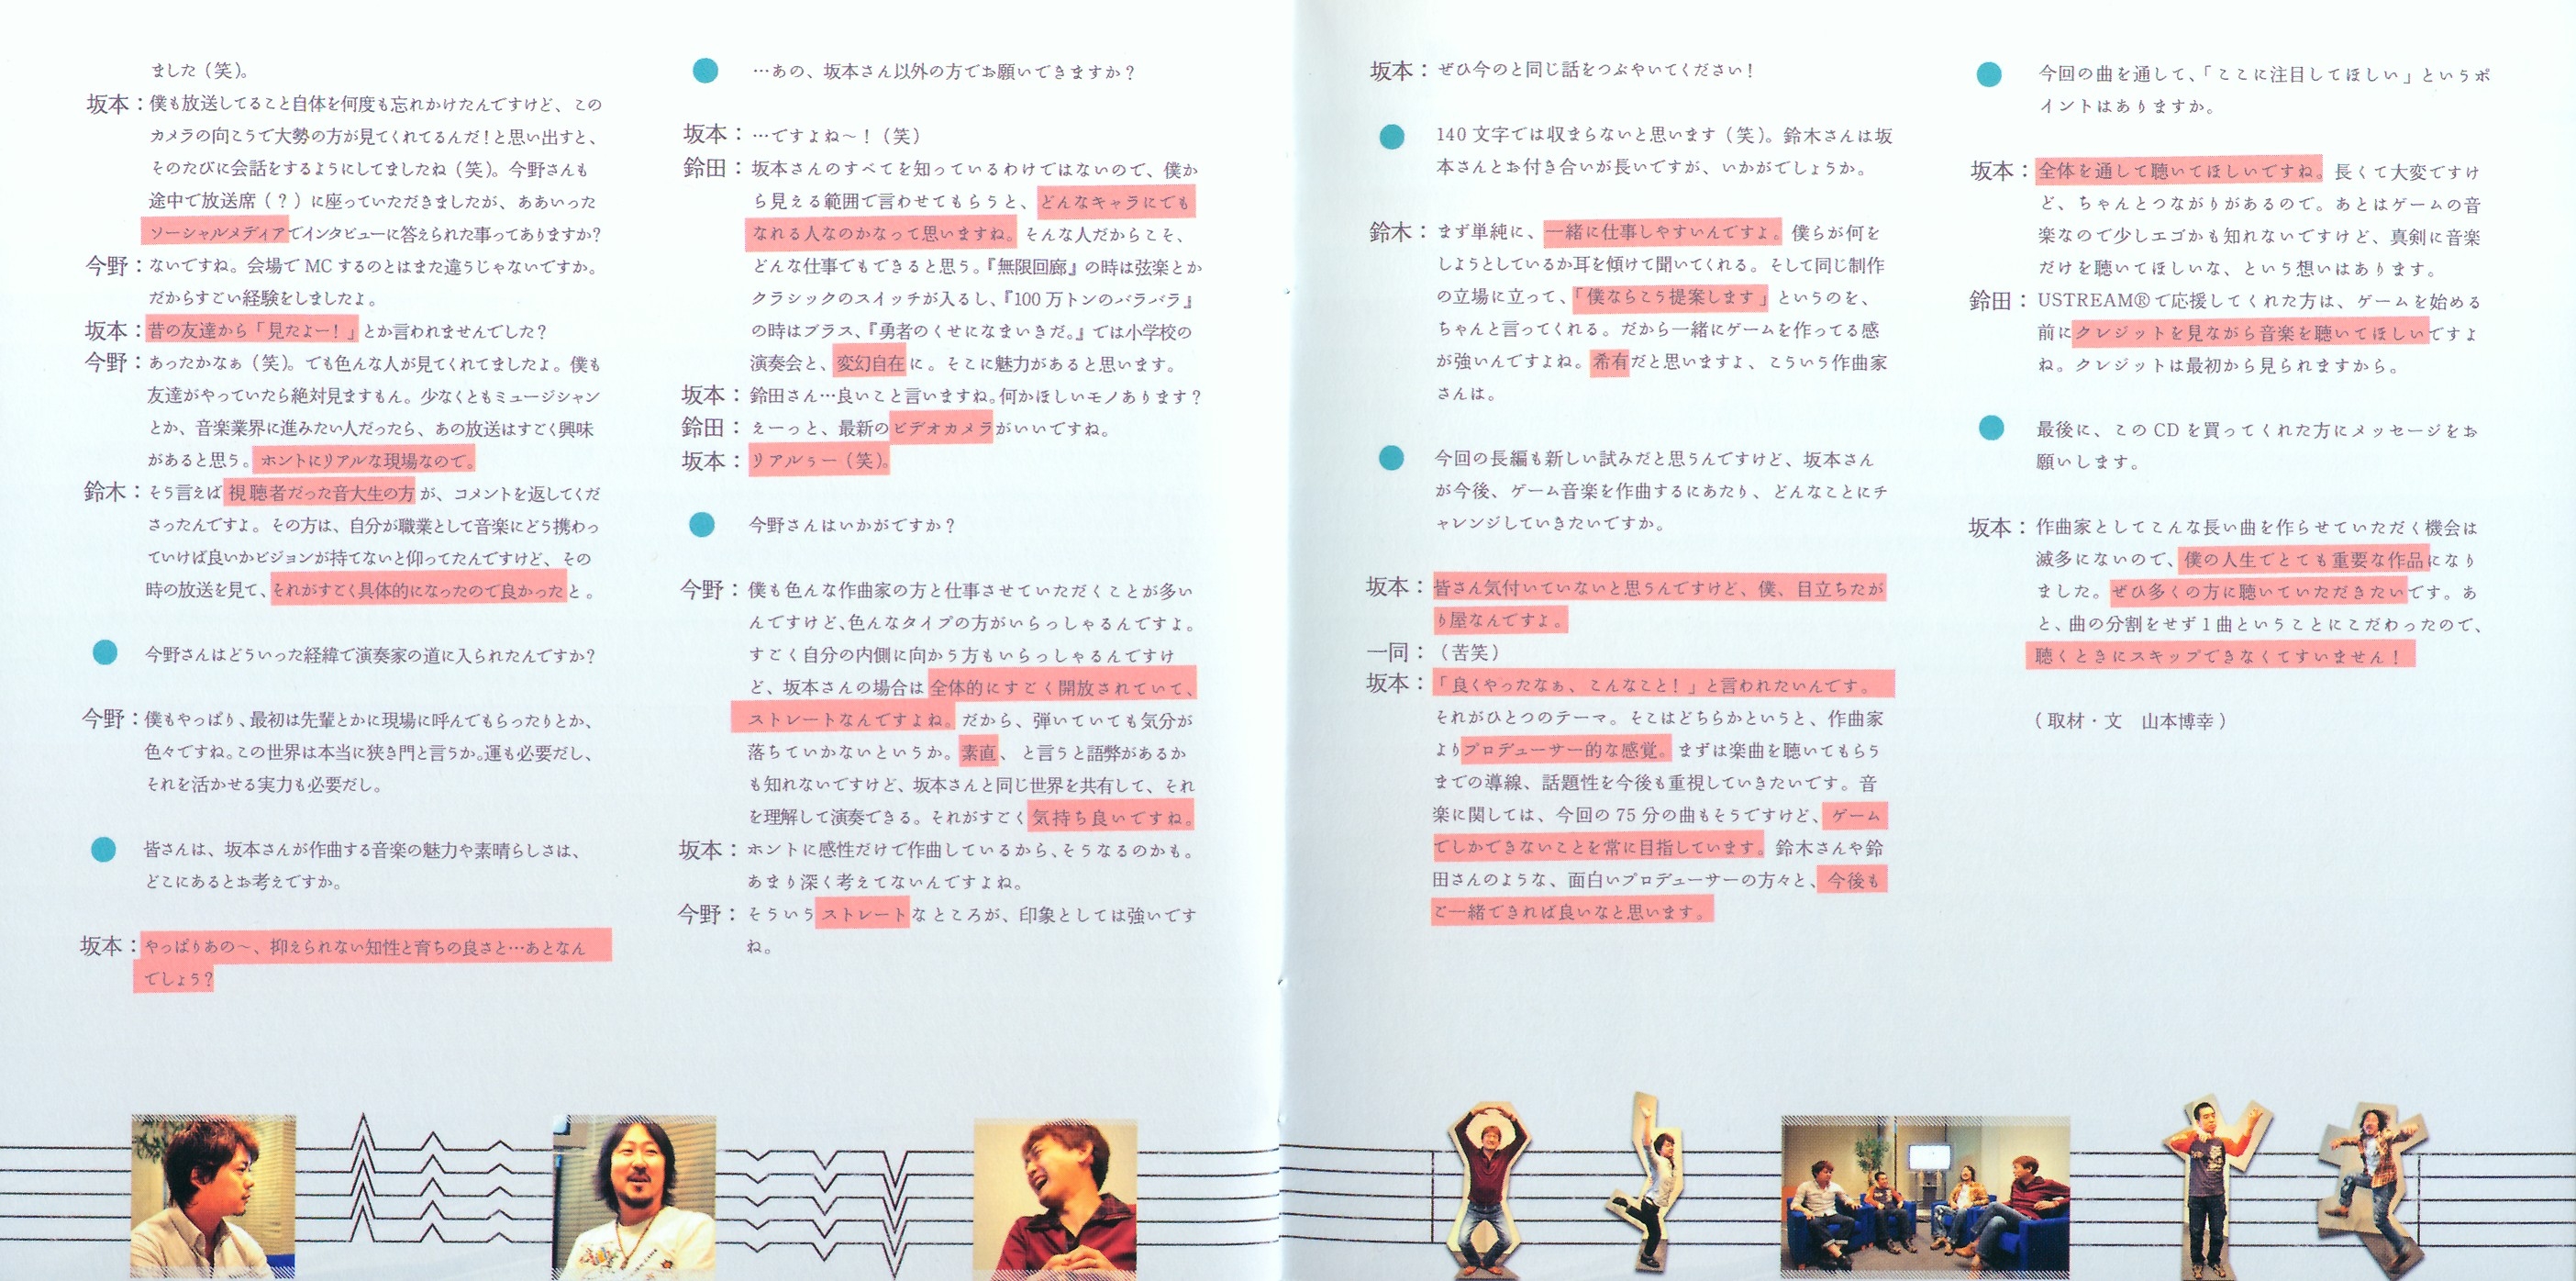 ました（笑）。
坂本：僕も放送してること自体を何度も忘れかけたんですけど、この
カメラの向こうで大勢の方が見てくれてるんだ！と思い出すと、
そのたびに会話をするようにしてましたね（笑）。今野さんも
途中で放送席（？）に座っていただきましたが、ああいった
ソーシャルメディアでインタビューに答えられた事ってありますか？
今野：ないですね。会場で MC するのとはまた違うじゃないですか。
だからすごい経験をしましたよ。
坂本：昔の友達から「見たよー！」とか言われませんでした？
今野：あったかなぁ（笑）。でも色んな人が見てくれてましたよ。僕も
友達がやっていたら絶対見ますもん。少なくともミュージシャン
とか、音楽業界に進みたい人だったら、あの放送はすごく興味
があると思う。ホントにリアルな現場なので。
鈴木：そう言えば視聴者だった音大生の方が、コメントを返してくだ
さったんですよ。その方は、自分が職業として音楽にどう携わっ
ていけば良いかビジョンが持てないと仰ってたんですけど、その
時の放送を見て、それがすごく具体的になったので良かったと。
今野さんはどういった経緯で演奏家の道に入られたんですか？
今野：僕もやっぱり、最初は先輩とかに現場に呼んでもらったりとか、
色々ですね。この世界は本当に狭き門と言うか。運も必要だし、
それを活かせる実力も必要だし。
皆さんは、坂本さんが作曲する音楽の魅力や素晴らしさは、
どこにあるとお考えですか。
坂本：やっぱりあの〜、抑えられない知性と育ちの良さと…あとなん
でしょう？
…あの、坂本さん以外の方でお願いできますか？
坂本：…ですよね〜！（笑）
鈴田：坂本さんのすべてを知っているわけではないので、僕か
ら見える範囲で言わせてもらうと、どんなキャラにでも
なれる人なのかなって思いますね。そんな人だからこそ、
どんな仕事でもできると思う。『無限回廊』の時は弦楽とか
クラシックのスイッチが入るし、『100 万トンのバラバラ』
の時はブラス、『勇者のくせになまいきだ。』では小学校の
演奏会と、変幻自在に。そこに魅力があると思います。
坂本：鈴田さん…良いこと言いますね。何かほしいモノあります？
鈴田：えーっと、最新のビデオカメラがいいですね。
坂本：リアルぅー（笑）。
今野さんはいかがですか？
今野：僕も色んな作曲家の方と仕事させていただくことが多い
んですけど、色んなタイプの方がいらっしゃるんですよ。
すごく自分の内側に向かう方もいらっしゃるんですけ
ど、坂本さんの場合は全体的にすごく開放されていて、
ストレートなんですよね。だから、弾いていても気分が
落ちていかないというか。素直、と言うと語弊があるか
も知れないですけど、坂本さんと同じ世界を共有して、それ
を理解して演奏できる。それがすごく気持ち良いですね。
坂本：ホントに感性だけで作曲しているから、そうなるのかも。
あまり深く考えてないんですよね。
今野：そういうストレートなところが、印象としては強いです
ね。
坂本：ぜひ今のと同じ話をつぶやいてください！
140 文字では収まらないと思います（笑）。鈴木さんは坂
本さんとお付き合いが長いですが、いかがでしょうか。
鈴木：まず単純に、一緒に仕事しやすいんですよ。僕らが何を
しようとしているか耳を傾けて聞いてくれる。そして同じ制作
の立場に立って、「僕ならこう提案します」というのを、
ちゃんと言ってくれる。だから一緒にゲームを作ってる感
が強いんですよね。希有だと思いますよ、こういう作曲家
さんは。
今回の長編も新しい試みだと思うんですけど、坂本さん
が今後、ゲーム音楽を作曲するにあたり、どんなことにチ
ャレンジしていきたいですか。
坂本：皆さん気付いていないと思うんですけど、僕、目立ちたが
り屋なんですよ。
一同：（苦笑）
坂本：「良くやったなぁ、こんなこと！」と言われたいんです。
それがひとつのテーマ。そこはどちらかというと、作曲家
よりプロデューサー的な感覚。まずは楽曲を聴いてもらう
までの導線、話題性を今後も重視していきたいです。音
楽に関しては、今回の 75 分の曲もそうですけど、ゲーム
でしかできないことを常に目指しています。鈴木さんや鈴
田さんのような、面白いプロデューサーの方々と、今後も
ご一緒できれば良いなと思います。
今回の曲を通して、「ここに注目してほしい」というポ
イントはありますか。
坂本：全体を通して聴いてほしいですね。長くて大変ですけ
ど、ちゃんとつながりがあるので。あとはゲームの音
楽なので少しエゴかも知れないですけど、真剣に音楽
だけを聴いてほしいな、という想いはあります。
鈴田：USTREAM®で応援してくれた方は、ゲームを始める
前にクレジットを見ながら音楽を聴いてほしいですよ
ね。クレジットは最初から見られますから。
最後に、この CD を買ってくれた方にメッセージをお
願いします。
坂本：作曲家としてこんな長い曲を作らせていただく機会は
滅多にないので、僕の人生でとても重要な作品になり
ました。ぜひ多くの方に聴いていただきたいです。あ
と、曲の分割をせず１曲ということにこだわったので、
聴くときにスキップできなくてすいません！
（取材・文　山本博幸）